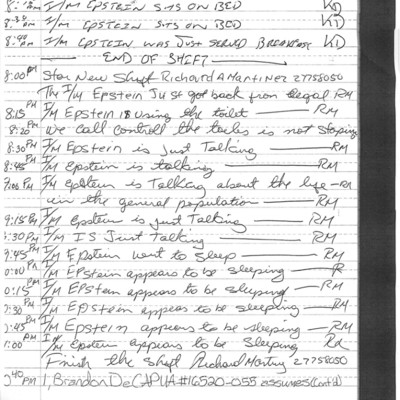 8: PM I/M EPSTEIN SITS ON BED KD
8:30 PM I/M EPSTEIN SITS ON BED KD
8:40 PM I/M EPSTEIN WAS JUST SERVED BREAKFAST KD
END OF SHIFT
8:00 PM Star New Shift Richard A Martinez 27758050
The I/M Epstein Just got back from llegal RM
8:15 PM I/M Epstein is using the toilet RM
8:20 PM We call controll the toiles is not stoping
8:30 PM I/M Epstein is Just Talking RM
8:45 PM I/M Epstein is talking RM
9:00 PM I/M Epstein is Talking about the life RM
in the general population RM
9:15 PM I/M Epstein is just Talking RM
:30 PM I/M IS Just Talking RM
9:45 PM I/M Epstein went to Sleep RM
0:00 PM I/M EPStein appears to be sleeping R
0:15 PM I/M EPStein appears to be sleeping RM
:30 PM I/M EPStein appears to be sleeping RM
:45 PM I/M Epstein appears to be sleeping RM
1:00 PM I/M Epstein appears to be Sleeping
Finish the Shift Richard 27758050
0:40 PM I, Brandon DeCAPUA #16520-055 assumes (Cont'd)